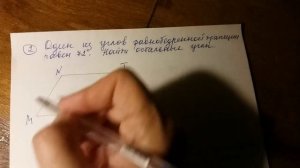 ② Один из углов равнобедренной трапеции
равен 72°. Найти остальные углы.
N T
M